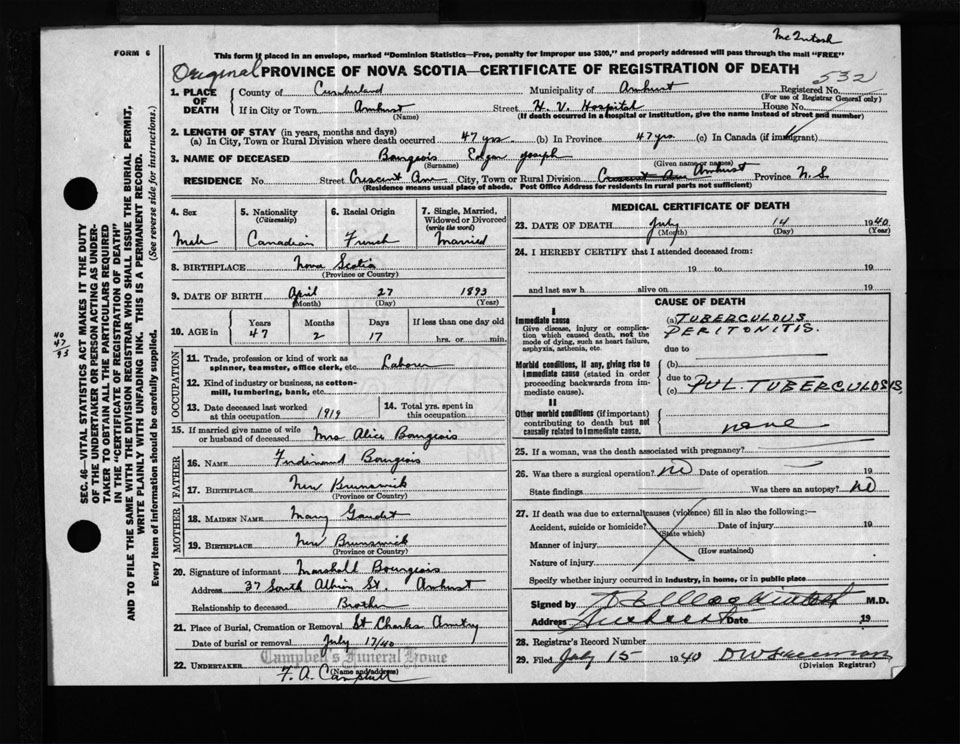 McIntosh
FORM 6
This form if placed in an envelope, marked "Dominion Statistics—Free, penalty for improper use $300," and properly addressed will pass through the mail "FREE"
Original PROVINCE OF NOVA SCOTIA—CERTIFICATE OF REGISTRATION OF DEATH
532
1. PLACE OF DEATH County of Cumberland Municipality of Amherst Registered No.
(For use of Registrar General only)
If in City or Town Amherst Street H. V. Hospital House No.
(Name) (If death occurred in a hospital or institution, give the name instead of street and number)
2. LENGTH OF STAY (in years, months and days)
(a) In City, Town or Rural Division where death occurred 47 yrs. (b) In Province 47 yrs. (c) In Canada (if immigrant)
3. NAME OF DECEASED Bourgeois Edgar Joseph
(Surname) (Given name or names)
RESIDENCE No. Street Crescent Ave City, Town or Rural Division Crescent Ave Amherst Province N.S.
(Residence means usual place of abode. Post Office Address for residents in rural parts not sufficient)
4. Sex 5. Nationality (Citizenship) 6. Racial Origin 7. Single, Married, Widowed or Divorced (write the word)
Male Canadian French Married
8. BIRTHPLACE Nova Scotia
(Province or Country)
9. DATE OF BIRTH April 27 1893
(Month) (Day) (Year)
10. AGE in Years Months Days If less than one day old
47 2 17 hrs. or min.
OCCUPATION
11. Trade, profession or kind of work as spinner, teamster, office clerk, etc. Labour
12. Kind of industry or business, as cotton-mill, lumbering, bank, etc.
13. Date deceased last worked at this occupation 1919 14. Total yrs. spent in this occupation
15. If married give name of wife or husband of deceased Mrs Alice Bourgeois
FATHER
16. NAME Ferdinand Bourgeois
17. BIRTHPLACE New Brunswick
(Province or Country)
MOTHER
18. MAIDEN NAME Mary Gaudet
19. BIRTHPLACE New Brunswick
(Province or Country)
20. Signature of informant Marshall Bourgeois
Address 37 South Albion St. Amherst
Relationship to deceased Brother
21. Place of Burial, Cremation or Removal St Charles Amherst
Date of burial or removal July 17/40
Campbell's Funeral Home
22. UNDERTAKER F. A. Campbell
(Name and address)
MEDICAL CERTIFICATE OF DEATH
23. DATE OF DEATH July 14 1940
(Month) (Day) (Year)
24. I HEREBY CERTIFY that I attended deceased from:
19 to 19
and last saw h alive on 19
CAUSE OF DEATH
I
Immediate cause (a) TUBERCULOUS
Give disease, injury or complication which caused death, not the mode of dying, such as heart failure, asphyxia, asthenia, etc. PERITONITIS.
due to
Morbid conditions, if any, giving rise to immediate cause (stated in order proceeding backwards from immediate cause). (b)
due to
(c) PUL. TUBERCULOSIS
II
Other morbid conditions (if important) contributing to death but not causally related to immediate cause. none
25. If a woman, was the death associated with pregnancy?
26. Was there a surgical operation? no Date of operation 19
State findings Was there an autopsy? no
27. If death was due to external causes (violence) fill in also the following:—
Accident, suicide or homicide? Date of injury 19
(State which)
Manner of injury
(How sustained)
Nature of injury
Specify whether injury occurred in industry, in home, or in public place
Signed by M.D.
Address Amherst Date 19
28. Registrar's Record Number
29. Filed July 15 1940
(Division Registrar)
SEC. 46—VITAL STATISTICS ACT MAKES IT THE DUTY
OF THE UNDERTAKER OR PERSON ACTING AS UNDER-
TAKER TO OBTAIN ALL THE PARTICULARS REQUIRED
IN THE "CERTIFICATE OF REGISTRATION OF DEATH"
AND TO FILE THE SAME WITH THE DIVISION REGISTRAR WHO SHALL ISSUE THE BURIAL PERMIT,
WRITE PLAINLY WITH UNFADING INK. THIS IS A PERMANENT RECORD.
Every item of information should be carefully supplied. (See reverse side for instructions.)
40
47
93